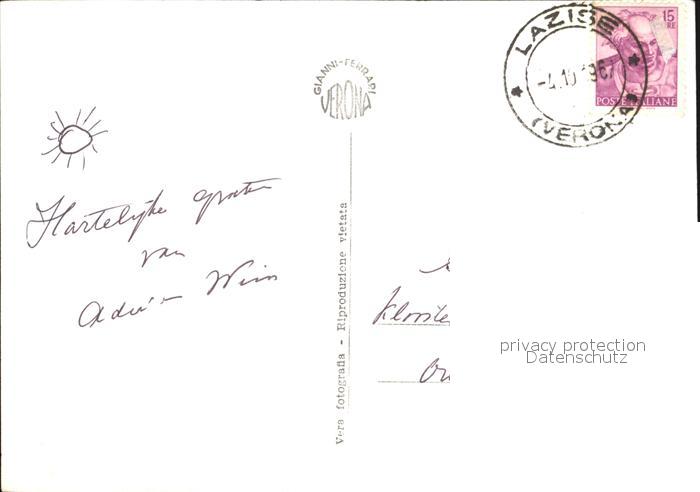 LAZISE
-4.10.1967
(VERONA)
15
POSTE ITALIANE
GIANNI-FERRARI
VERONA
Hartelijke groeten
van
Wim
Vera fotografia - Riproduzione vietata
privacy protection
Datenschutz